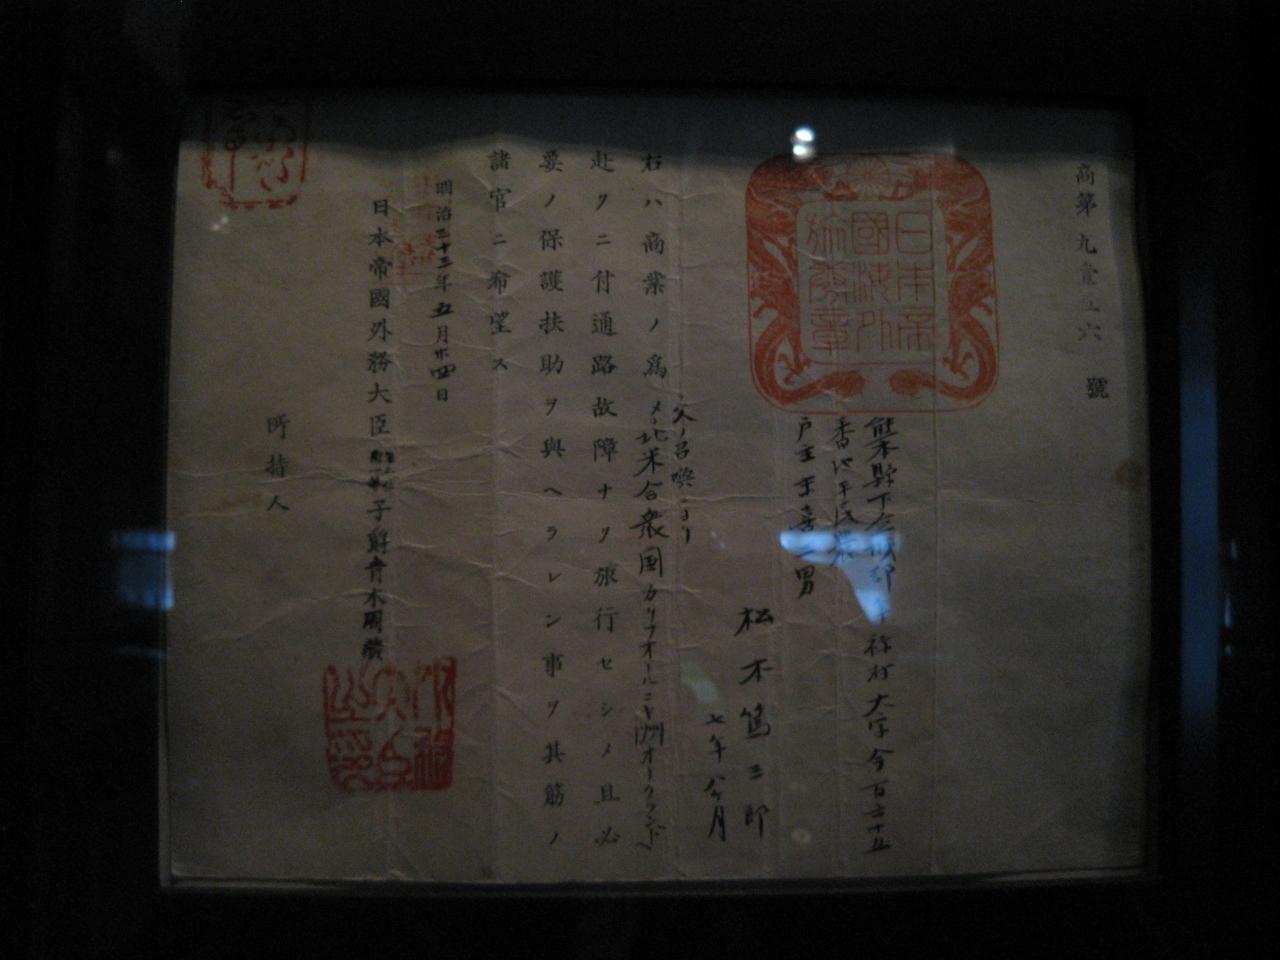 商第九壹五六號
日本帝
國海外
旅券章
熊本縣下益城郡
村大字今百六十五
番地平民農
戸主末喜二男
松本篤三郎
七年八ケ月
父ノ召喚ニヨリ
右ハ商業ノ爲メ北米合衆国カリフオールニヤ州オークランドヘ
赴クニ付通路故障ナク旅行セシメ且必
要ノ保護扶助ヲ與ヘラレン事ヲ其筋ノ
諸官ニ希望ス
明治三十三年五月廿四日
日本帝國外務大臣 子爵青木周藏
外務
大臣
之印
所持人